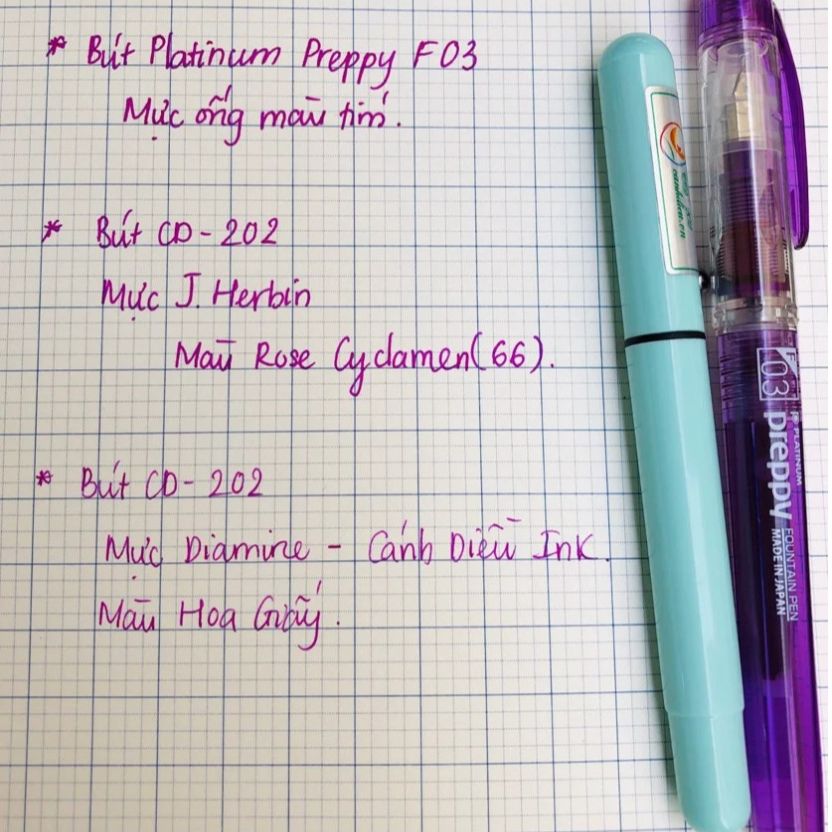 * Bút Platinum Preppy F03
Mực ống màu tím.
* Bút CD-202
Mực J. Herbin
Màu Rose Cyclamen(66).
* Bút CD-202
Mực Diamine - Cánh Diều Ink.
Màu Hoa Giấy.
canhdieu.vn
03
PLATINUM
preppy
FOUNTAIN PEN
MADE IN JAPAN